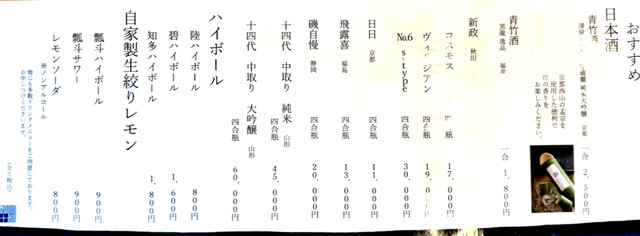 おすすめ
日本酒
青竹酒
純米大吟醸 京都 一合 2,500円
京都西山の孟宗を
使用した徳利で
竹の香りを
お楽しみください。
青竹酒
黒龍逸品 福井 一合 1,800円
新政 秋田
コスモス 四合瓶 17,000円
ヴィリジアン 四合瓶
No.6 s-type 四合瓶 30,000円
日日 京都 四合瓶 11,000円
飛露喜 福島 四合瓶 13,000円
磯自慢 静岡 四合瓶 20,000円
十四代 中取り 純米 山形 四合瓶 45,000円
十四代 中取り 大吟醸 山形 四合瓶 60,000円
ハイボール
陸ハイボール 800円
碧ハイボール 1,600円
知多ハイボール 1,800円
自家製生絞りレモン
瓢斗ハイボール 900円
瓢斗サワー 900円
レモンソーダ 800円
※ノンアルコール
他にも多数ドリンクメニューをご用意しております。
お申しつけくださいませ。
(全て税込)